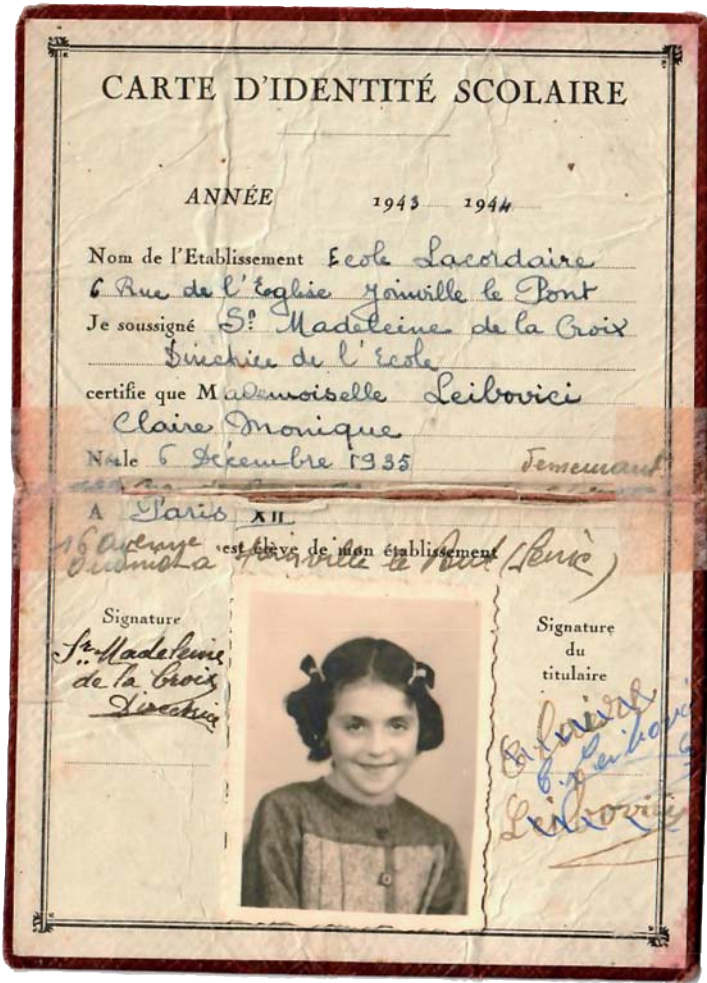 CARTE D'IDENTITÉ SCOLAIRE
ANNÉE 1943 1944
Nom de l'Etablissement Ecole Lacordaire
6 Rue de l'Eglise Joinville le Pont
Je soussigné Sr Madeleine de la Croix
Directrice de l'Ecole
certifie que Mademoiselle Leibovici
Claire Monique
Née le 6 Décembre 1935 demeurant
A Paris XII
16 avenue est élève de mon établissement
à Joinville le Pont (Seine)
Signature
Sr Madeleine
de la Croix
Directrice
Signature
du
titulaire
C. Leibovici
Leibovici